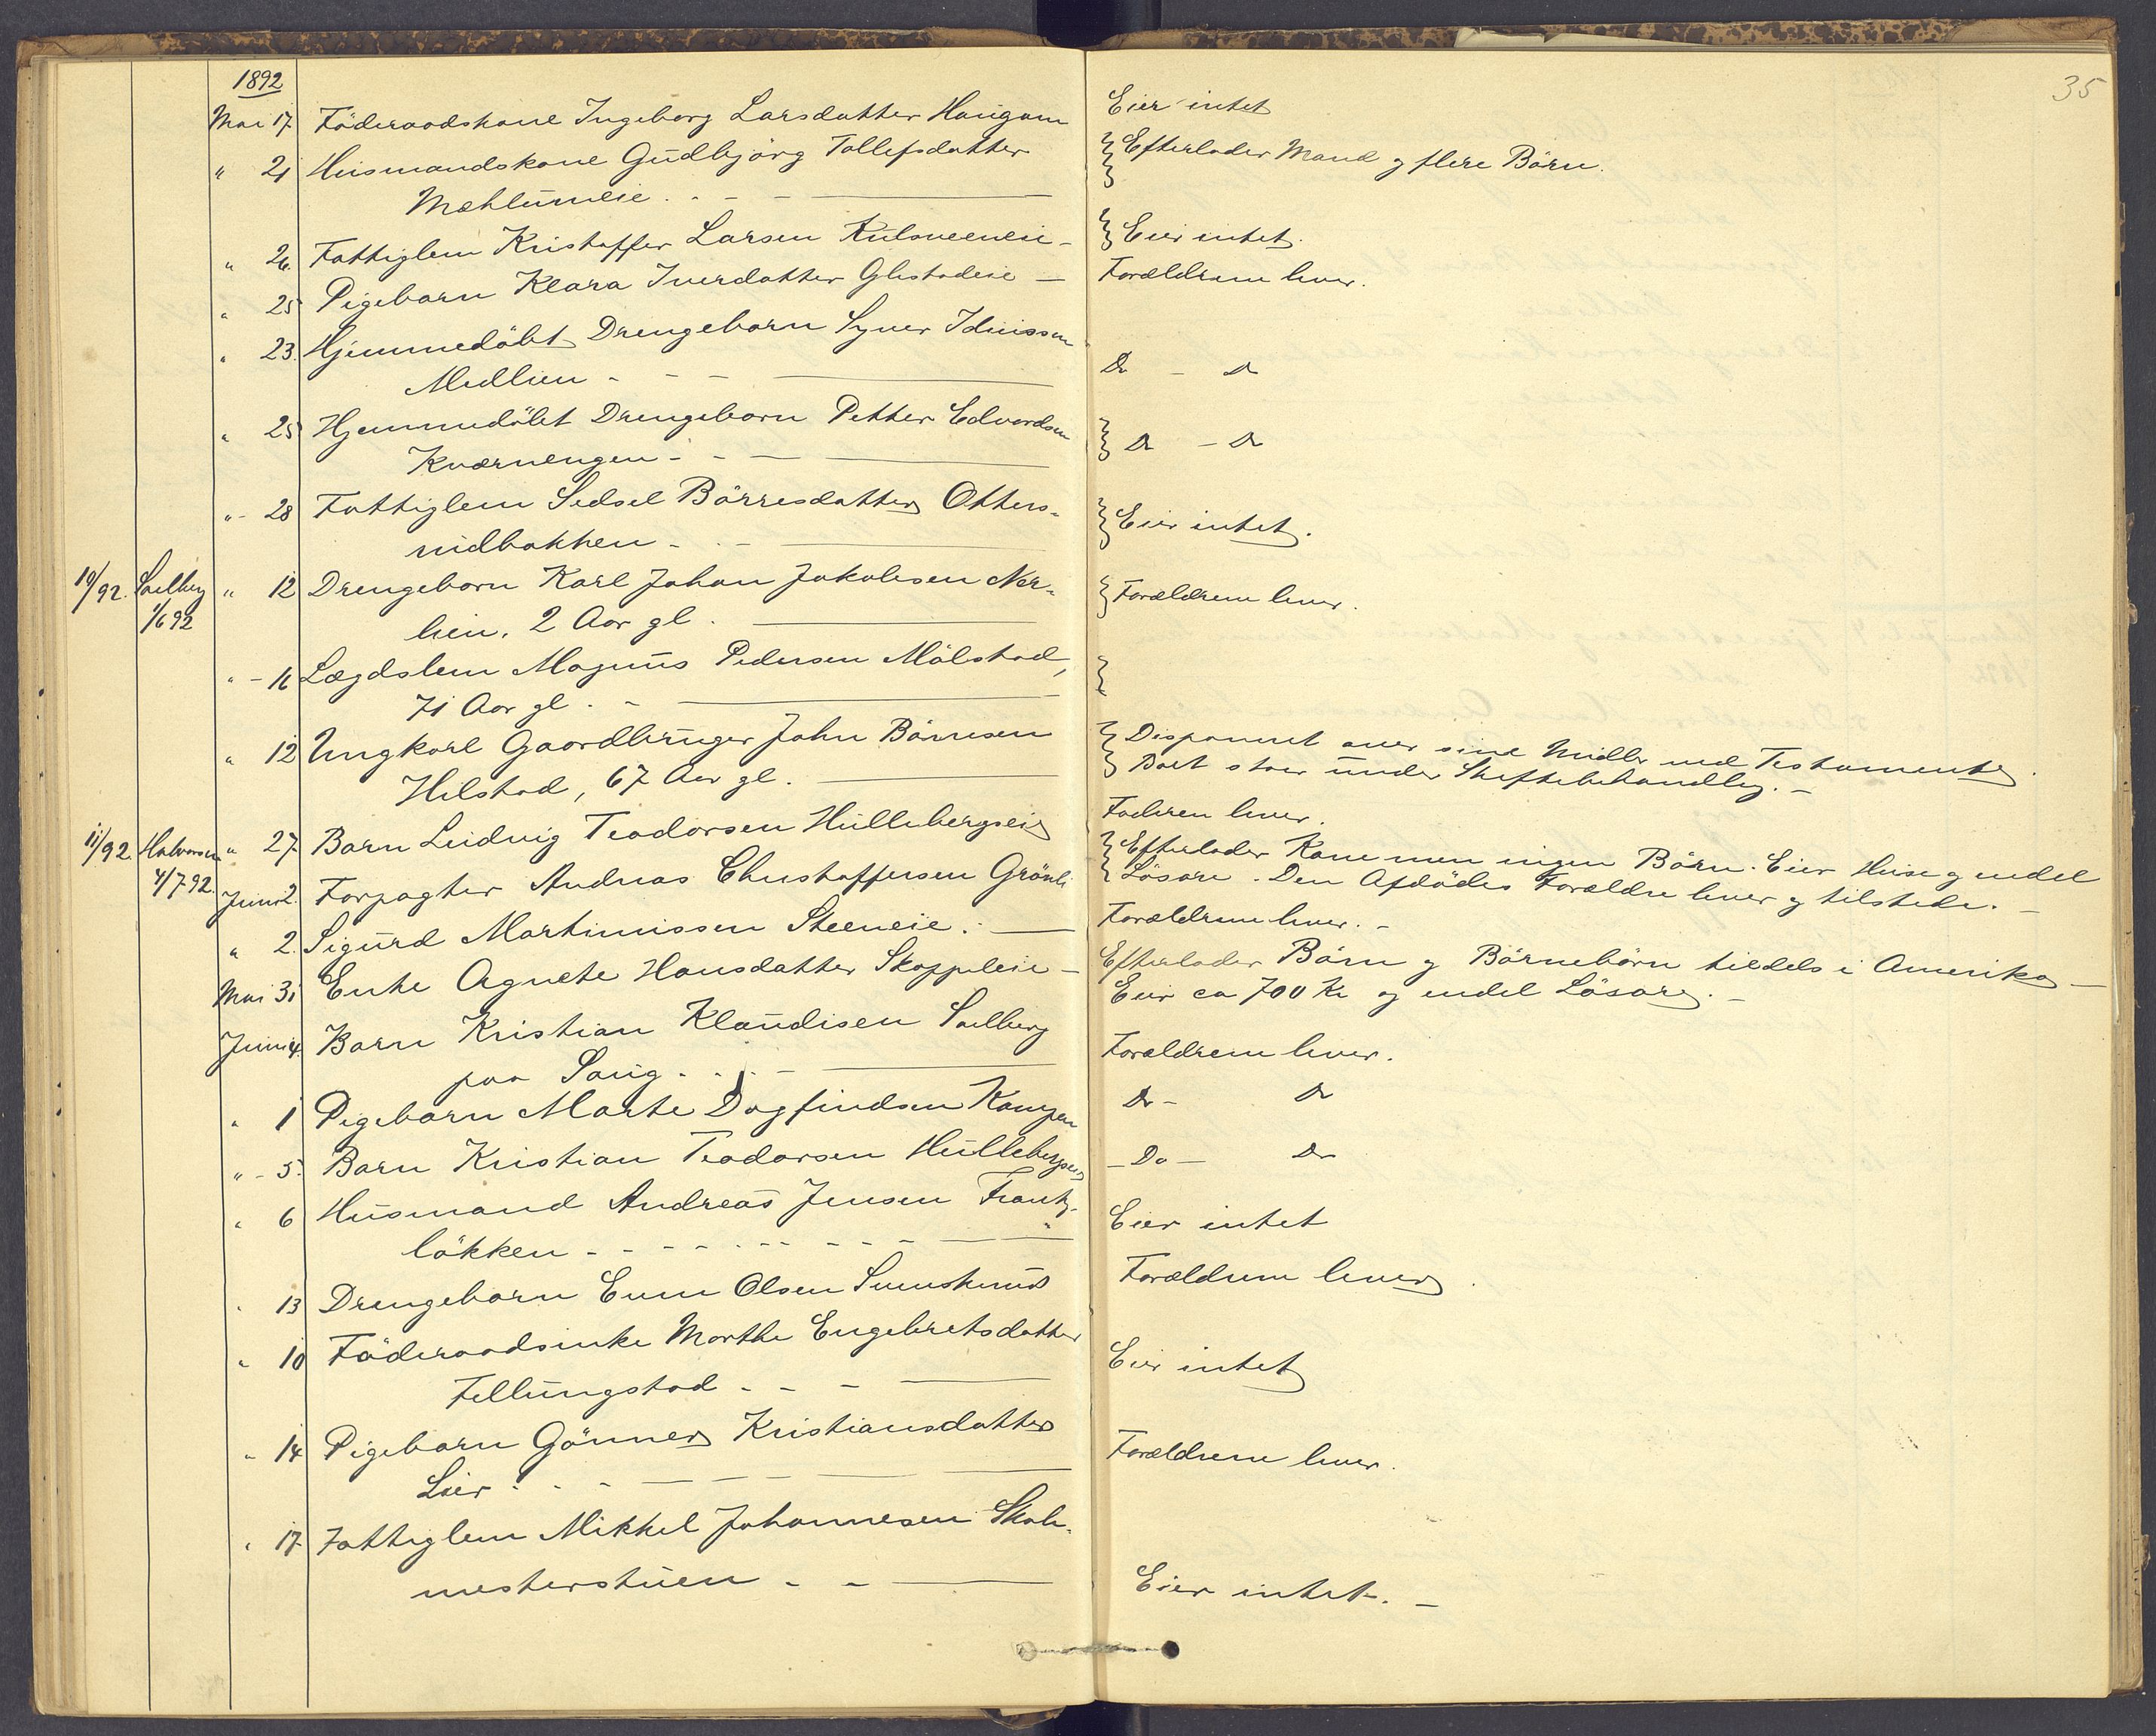 35
1892
Mai 17. Föderaadskone Ingeborg Larsdatter Haugom
Eier intet
" 21 Husmandskone Gudbjörg Tollefsdatter
Efterlader Mand og flere Börn.
Mæhlumeie.
" 26. Fattiglem Kristoffer Larsen
Eier intet.
" 25 Pigebarn Klara Iverdatter Glestadeie
Forældrene lever.
" 23. Hjemmedöbt Drengebarn Syver
Medlien
Do - Do
" 25 Hjemmedöbt Drengebarn Petter Edvardsen
Kværnengen
Do - Do
" 28 Fattiglem Sidsel Börresdatter Otters-
rudbakken
Eier intet.
10/92. Soelberg 1/6 92
" 12 Drengebarn Karl Johan Jakobsen Nor-
lien. 2 Aar gl.
Forældrene lever.
" 16 Lægdslem Magnus Pedersen Mölstad,
71 Aar gl.
" 12 Ungkarl Gaardbruger John Börresen
Hilstad, 67 Aar gl.
Disponeret over sine Midler med Testamente.
Boet staar under Skiftebehandling.
11/92. Halvorsen 4/7 92.
" 27. Barn Ludvig Teodorsen Hullebergeie
Faderen lever.
Juni 2. Forpagter Andreas Christoffersen Grönli
Efterlader Kone men ingen Börn. Eier Huse og endel
Lösöre. Den Afdödes Forældre lever og tilstede.
" 2. Sigurd Martinissen Steeneie.
Forældrene lever.
Mai 31 Enke Agnete Hansdatter Skappeleie
Efterlader Börn og Börnebörn tildels i Amerika
Eier ca 700 Kr og endel Lösöre.
Juni 4. Barn Kristian Klaudisen Soelberg
paa Saug.
Forældrene lever.
" 1 Pigebarn Marte Dagfindsen Kampen
Do - Do
" 5. Barn Kristian Teodorsen Hullebergeie
Do - Do
" 6 Husmand Andreas Jensen Frantz-
lökken
Eier intet
" 13 Drengebarn Even Olsen
Forældrene lever.
" 10 Föderaadsenke Marthe Engebretsdatter
Fellungstad
Eier intet
" 14 Pigebarn Gönner Kristiansdatter
Lier
Forældrene lever.
" 17. Fattiglem Mikkel Johannesen Skole-
mesterstuen
Eier intet.